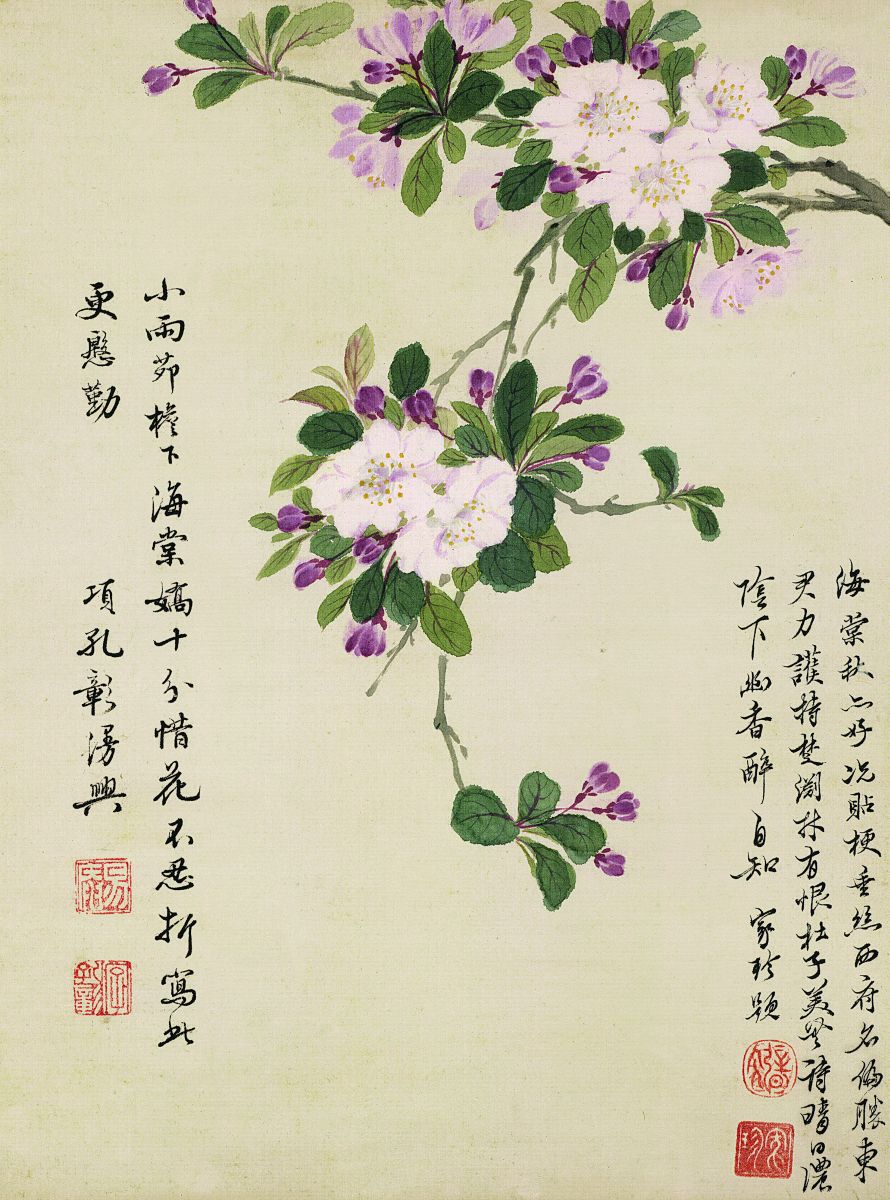 海棠秋亦好況貼梗垂絲西府名偏勝東
君力護持楚淵材有恨杜子美無詩晴日濃
陰下幽香醉自知 家珍題
家珍
小雨茆檐下海棠嬌十分惜花不忍折寫此
更慇勤 項孔彰漫興
字孔彰